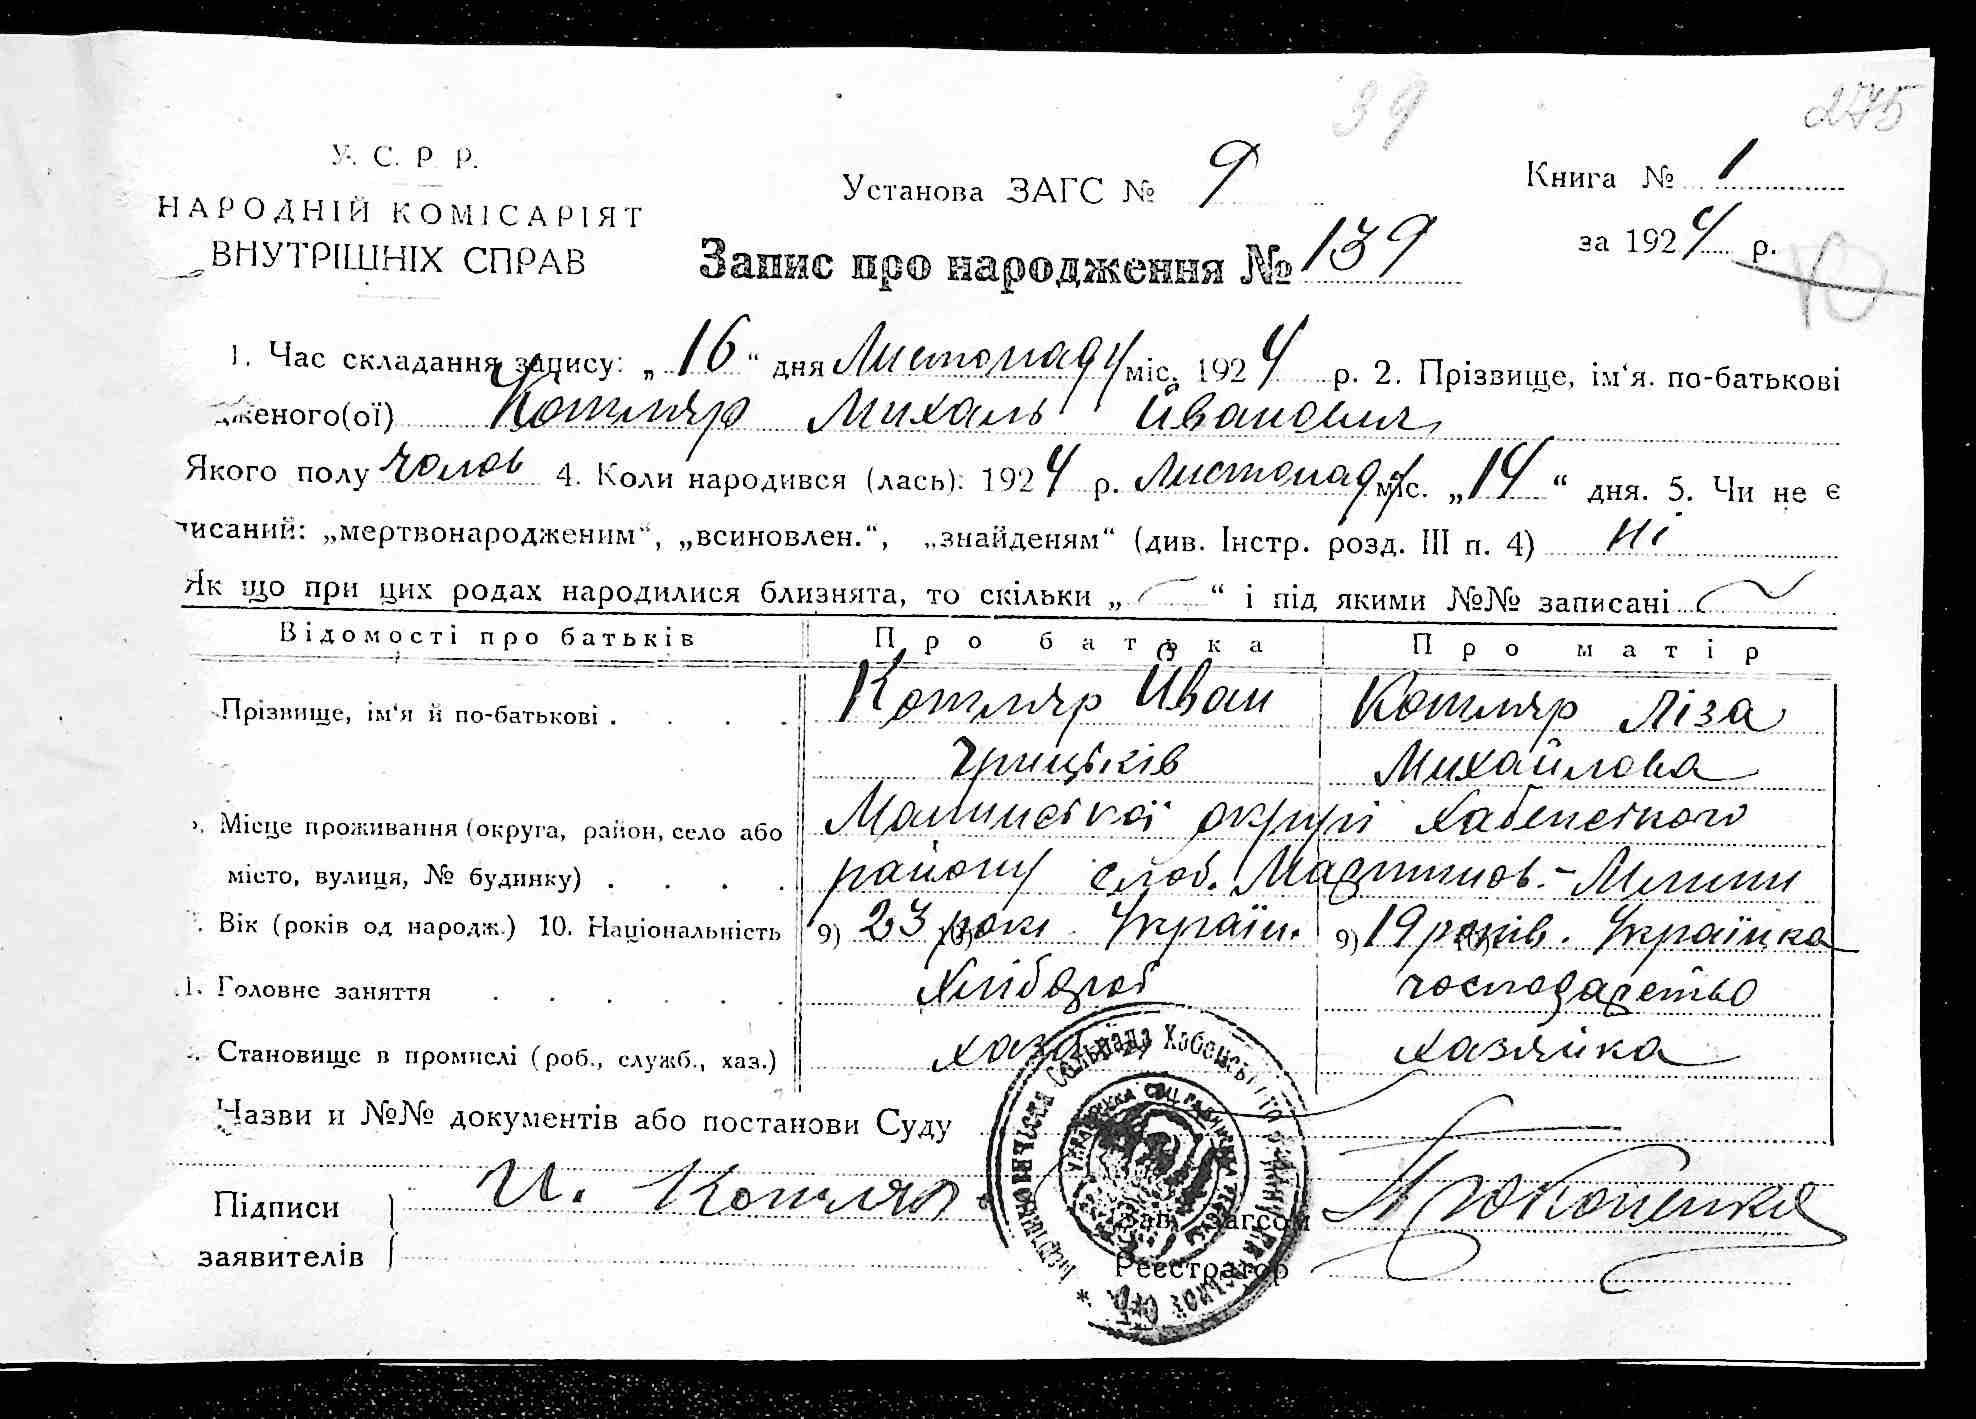 39
275
У. С. Р. Р.
НАРОДНІЙ КОМІСАРІЯТ
ВНУТРІШНІХ СПРАВ
Установа ЗАГС № 9
Книга № 1
за 1924 р.
Запис про народження № 139
1. Час складання запису: „16“ дня Листопаду міс. 1924 р. 2. Прізвище, ім‘я. по-батькові
дженого(ої) Котляр Михаль Йванович
Якого полу чолов 4. Коли народився (лась): 1924 р. Листопаду міс. „14“ дня. 5. Чи не є
писаний: „мертвонародженим“, „всиновлен.“, „знайденям“ (див. Інстр. розд. III п. 4) Ні
Як що при цих родах народилися близнята, то скільки „ “ і під якими №№ записані
Відомості про батьків Про батька Про матір
Прізвище, ім‘я й по-батькові . . . . Котляр Йван Котляр Ліза
Грицьків Михайлова
Місце проживання (округа, район, село або Малинської округі Хабенського
місто, вулиця, № будинку) . . . . району слоб.
Вік (років од народж.) 10. Національність 9) 23 роки Україн. 9) 19 років. Українка
1. Головне заняття . . . . . . Хлібороб господарство
Становище в промислі (роб., служб., хаз.) хазяїн хазяйка
Назви и №№ документів або постанови Суду
Підписи И. Котляр Зав. Загсом Прокопенко
заявителів Реєстратор
Сельрада Хабенського